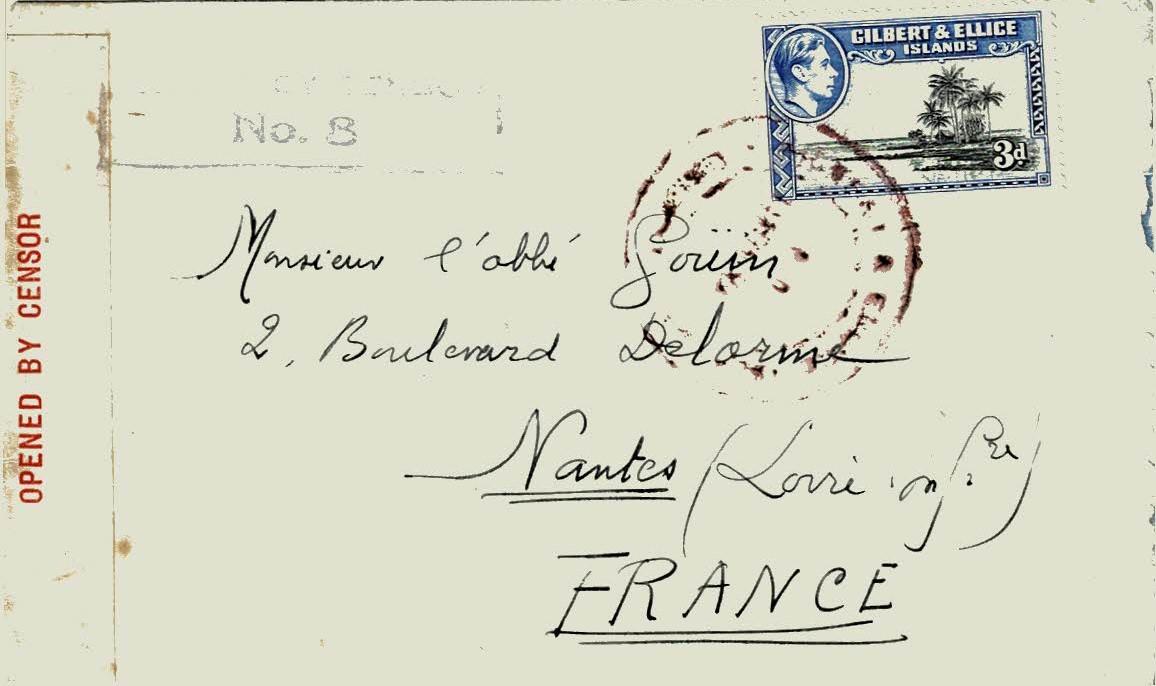 GILBERT & ELLICE
ISLANDS
3d
No. 8
OPENED BY CENSOR
Monsieur l'abbé Gouin
2, Boulevard Delorme
Nantes (Loire inf.re)
FRANCE